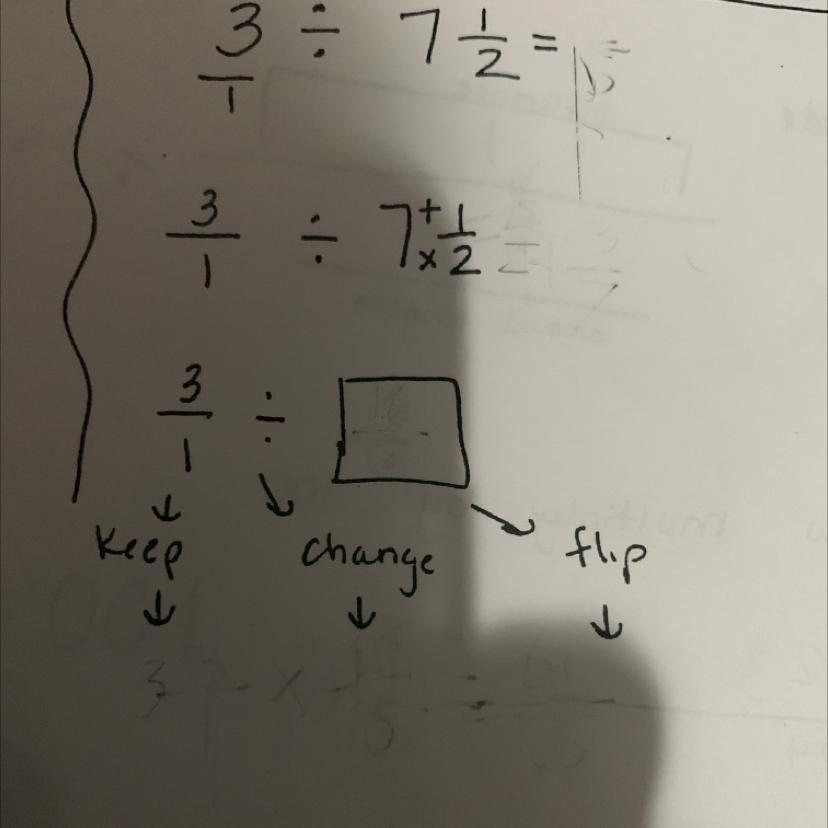 3/1 ÷ 7 1/2 =
3/1 ÷ 7 + × 1/2
3/1 ÷
Keep change flip